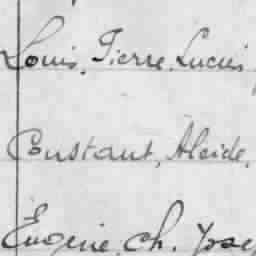 Louis, Pierre, Lucien
Constant, Alcide,
Eugène, Ch.